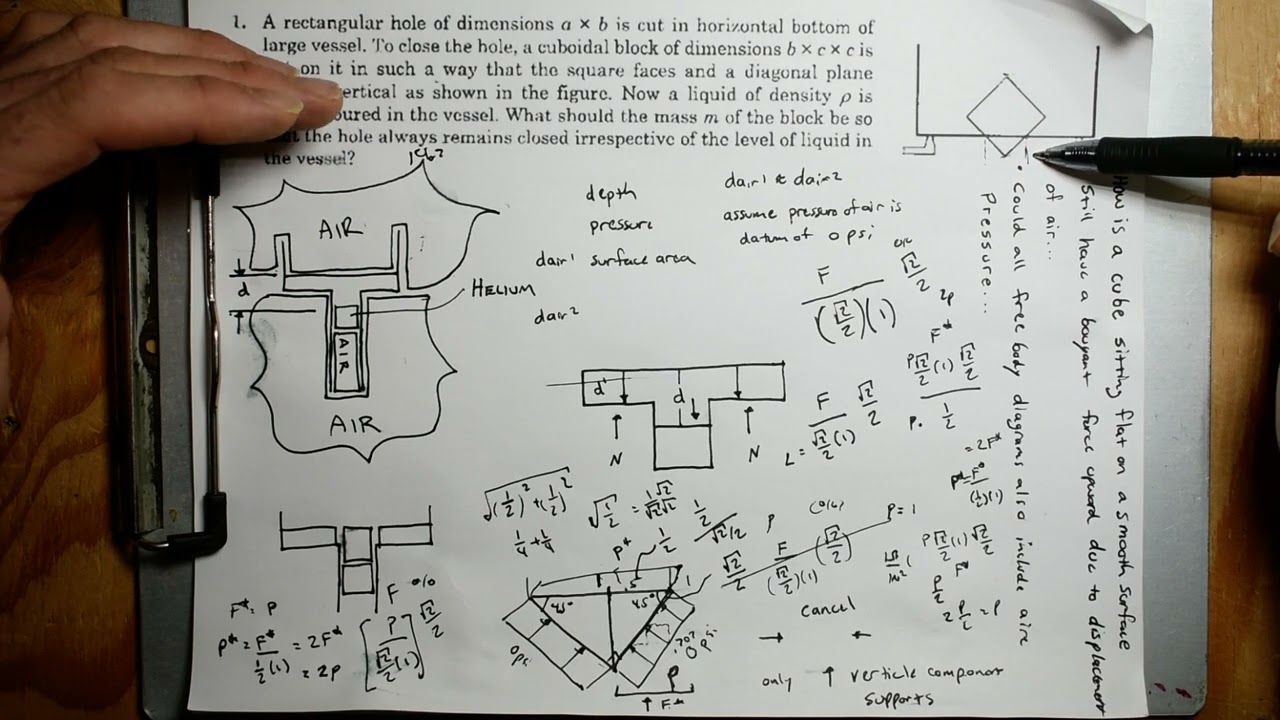 1. A rectangular hole of dimensions a × b is cut in horizontal bottom of
large vessel. To close the hole, a cuboidal block of dimensions b × c × c is
on it in such a way that the square faces and a diagonal plane
ertical as shown in the figure. Now a liquid of density ρ is
oured in the vessel. What should the mass m of the block be so
the hole always remains closed irrespective of the level of liquid in
the vessel?
AIR
d
HELIUM
AIR
AIR
depth
pressure
dair1 surface area
dair2
dair1 ≈ dair2
assume pressure of air is
datum of 0 psi
F
(√2/2)(1)
√2/2
2p
F*
P√2/2 (1) √2/2
1/2
= 2F*
d
d
N
N
F
L = √2/2 (1)
√2/2
√(1/2)² + (1/2)²
1/4 + 1/4
√1/2 = 1√2/√2√2
1/2
√2/2
P
P*
1/2
√2/2
F
(√2/2)(1)
(√2/2)
P = 1
P√2/2 (1) √2/2
= P
F
F* = P
P* = F*/½(1) = 2F* = 2P
[P/√2/2 (1)] √2/2
1
.5
1
45°
45°
0 psi
.707
0 psi
ρ
↑ F*
cancel
→ ←
only ↑ verticle componer
supports
How is a cube sitting flat on a smooth surface
still have a bouyant force upward due to displacement
of air...
• Could all free body diagrams also include aire
Pressure...